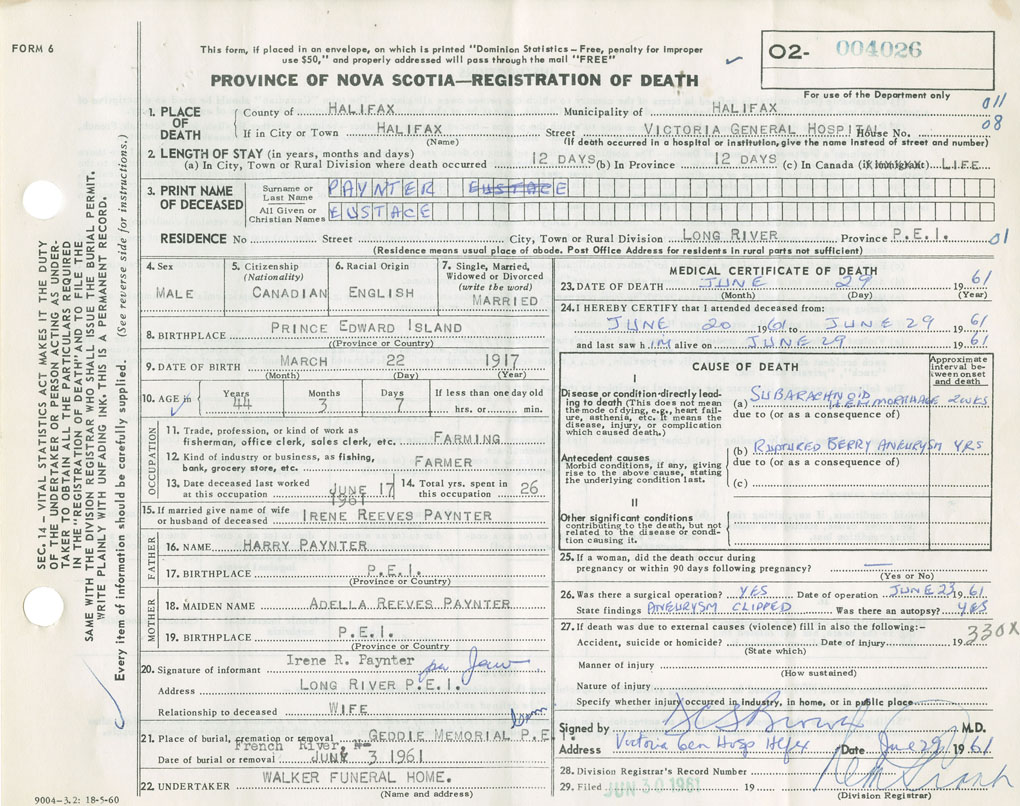 FORM 6
This form, if placed in an envelope, on which is printed "Dominion Statistics—Free, penalty for improper
use $50," and properly addressed will pass through the mail "FREE"
PROVINCE OF NOVA SCOTIA—REGISTRATION OF DEATH
02- 004026
For use of the Department only
011
08
1. PLACE OF DEATH
County of HALIFAX Municipality of HALIFAX
If in City or Town HALIFAX Street VICTORIA GENERAL HOSPITAL House No.
(Name) (If death occurred in a hospital or institution, give the name instead of street and number)
2. LENGTH OF STAY (in years, months and days)
(a) In City, Town or Rural Division where death occurred 12 DAYS (b) In Province 12 DAYS (c) In Canada (if immigrant) LIFE
3. PRINT NAME OF DECEASED
Surname or Last Name PAYNTER EUSTACE
All Given or Christian Names EUSTACE
RESIDENCE No. Street City, Town or Rural Division LONG RIVER Province P.E.I. 01
(Residence means usual place of abode. Post Office Address for residents in rural parts not sufficient)
4. Sex MALE
5. Citizenship (Nationality) CANADIAN
6. Racial Origin ENGLISH
7. Single, Married, Widowed or Divorced (write the word) MARRIED
8. BIRTHPLACE PRINCE EDWARD ISLAND
(Province or Country)
9. DATE OF BIRTH MARCH 22 1917
(Month) (Day) (Year)
10. AGE in Years 44 Months 3 Days 7 If less than one day old hrs. or min.
OCCUPATION
11. Trade, profession, or kind of work as
fisherman, office clerk, sales clerk, etc. FARMING
12. Kind of industry or business, as fishing,
bank, grocery store, etc. FARMER
13. Date deceased last worked at this occupation JUNE 17 1961
14. Total yrs. spent in this occupation 26
15. If married give name of wife
or husband of deceased IRENE REEVES PAYNTER
FATHER
16. NAME HARRY PAYNTER
17. BIRTHPLACE P.E.I.
(Province or Country)
MOTHER
18. MAIDEN NAME ADELLA REEVES PAYNTER
19. BIRTHPLACE P.E.I.
(Province or Country)
20. Signature of informant Irene R. Paynter per
Address LONG RIVER P.E.I.
Relationship to deceased WIFE
21. Place of burial, cremation or removal GEDDIE MEMORIAL P.E
French River,
Date of burial or removal 3 1961
22. UNDERTAKER WALKER FUNERAL HOME.
(Name and address)
MEDICAL CERTIFICATE OF DEATH
23. DATE OF DEATH JUNE 29 1961
(Month) (Day) (Year)
24. I HEREBY CERTIFY that I attended deceased from:
JUNE 20 1961 to JUNE 29 1961
and last saw him alive on JUNE 29 1961
CAUSE OF DEATH
Approximate interval between onset and death
I
Disease or condition directly leading to death (This does not mean
the mode of dying, e.g., heart failure, asthenia, etc. It means the
disease, injury, or complication
which caused death.)
(a) SUBARACHNOID HEMORRHAGE 2 WKS
due to (or as a consequence of)
Antecedent causes
Morbid conditions, if any, giving
rise to the above cause, stating
the underlying condition last.
(b) RUPTURED BERRY ANEURYSM YRS
due to (or as a consequence of)
(c)
II
Other significant conditions
contributing to the death, but not
related to the disease or condition causing it.
25. If a woman, did the death occur during
pregnancy or within 90 days following pregnancy? —
(Yes or No)
26. Was there a surgical operation? YES Date of operation JUNE 23 1961
State findings ANEURYSM CLIPPED Was there an autopsy? YES
27. If death was due to external causes (violence) fill in also the following:—
Accident, suicide or homicide? Date of injury 19
(State which)
330X
Manner of injury
(How sustained)
Nature of injury
Specify whether injury occurred in industry, in home, or in public place
Signed by M.D.
Address Victoria Gen Hosp Hlfx Date June 29 1961
28. Division Registrar's Record Number
29. Filed JUN 30 1961 19
(Division Registrar)
SEC. 14 — VITAL STATISTICS ACT MAKES IT THE DUTY
OF THE UNDERTAKER OR PERSON ACTING AS UNDERTAKER TO OBTAIN ALL THE PARTICULARS REQUIRED
IN THE "REGISTRATION OF DEATH" AND TO FILE THE
SAME WITH THE DIVISION REGISTRAR WHO SHALL ISSUE THE BURIAL PERMIT.
WRITE PLAINLY WITH UNFADING INK. THIS IS A PERMANENT RECORD.
Every item of information should be carefully supplied. (See reverse side for instructions.)
9004—3.2: 18-5-60